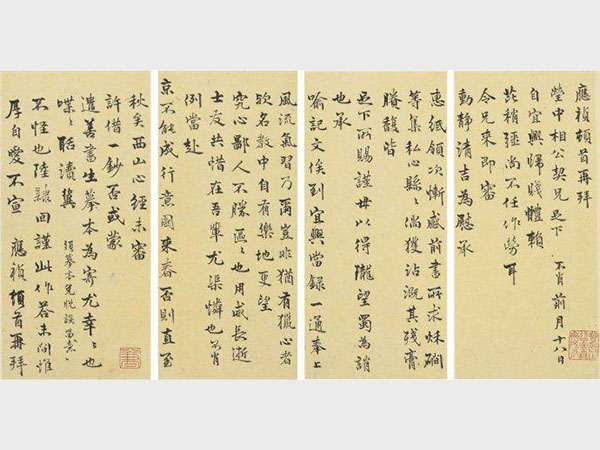 應禎頓首再拜
瑩中相公契兄足下 不肖前月十八日
自宜興歸賤體賴
芘稍 尚不任作勞耳
令兄來即審
動靜清吉為慰承
惠紙領次慚感前書所求秌澗
等集私心縣〻倘獲沾溉其殘膏
賸馥皆
足下所賜謹毋以得隴望蜀為誚
也承
喻記文俟到宜興當録一通奉上
風流氣習乃爾豈非猶有獵心者
欤名教中自有樂地更望
究心鄙人不勝區〻也用威長逝
士友共惜在吾輩尤 憐也不肖
例當赴
京不能成行意圖來春否則直至
秋矣西山心經未審
許借一鈔否或蒙
遣善書生摹本為寄尤幸〻也
喋〻聒瀆冀 須摹本 脫誤
不怪也陸隸回謹此作答未間惟
厚自愛不宣 應禎頓首再拜